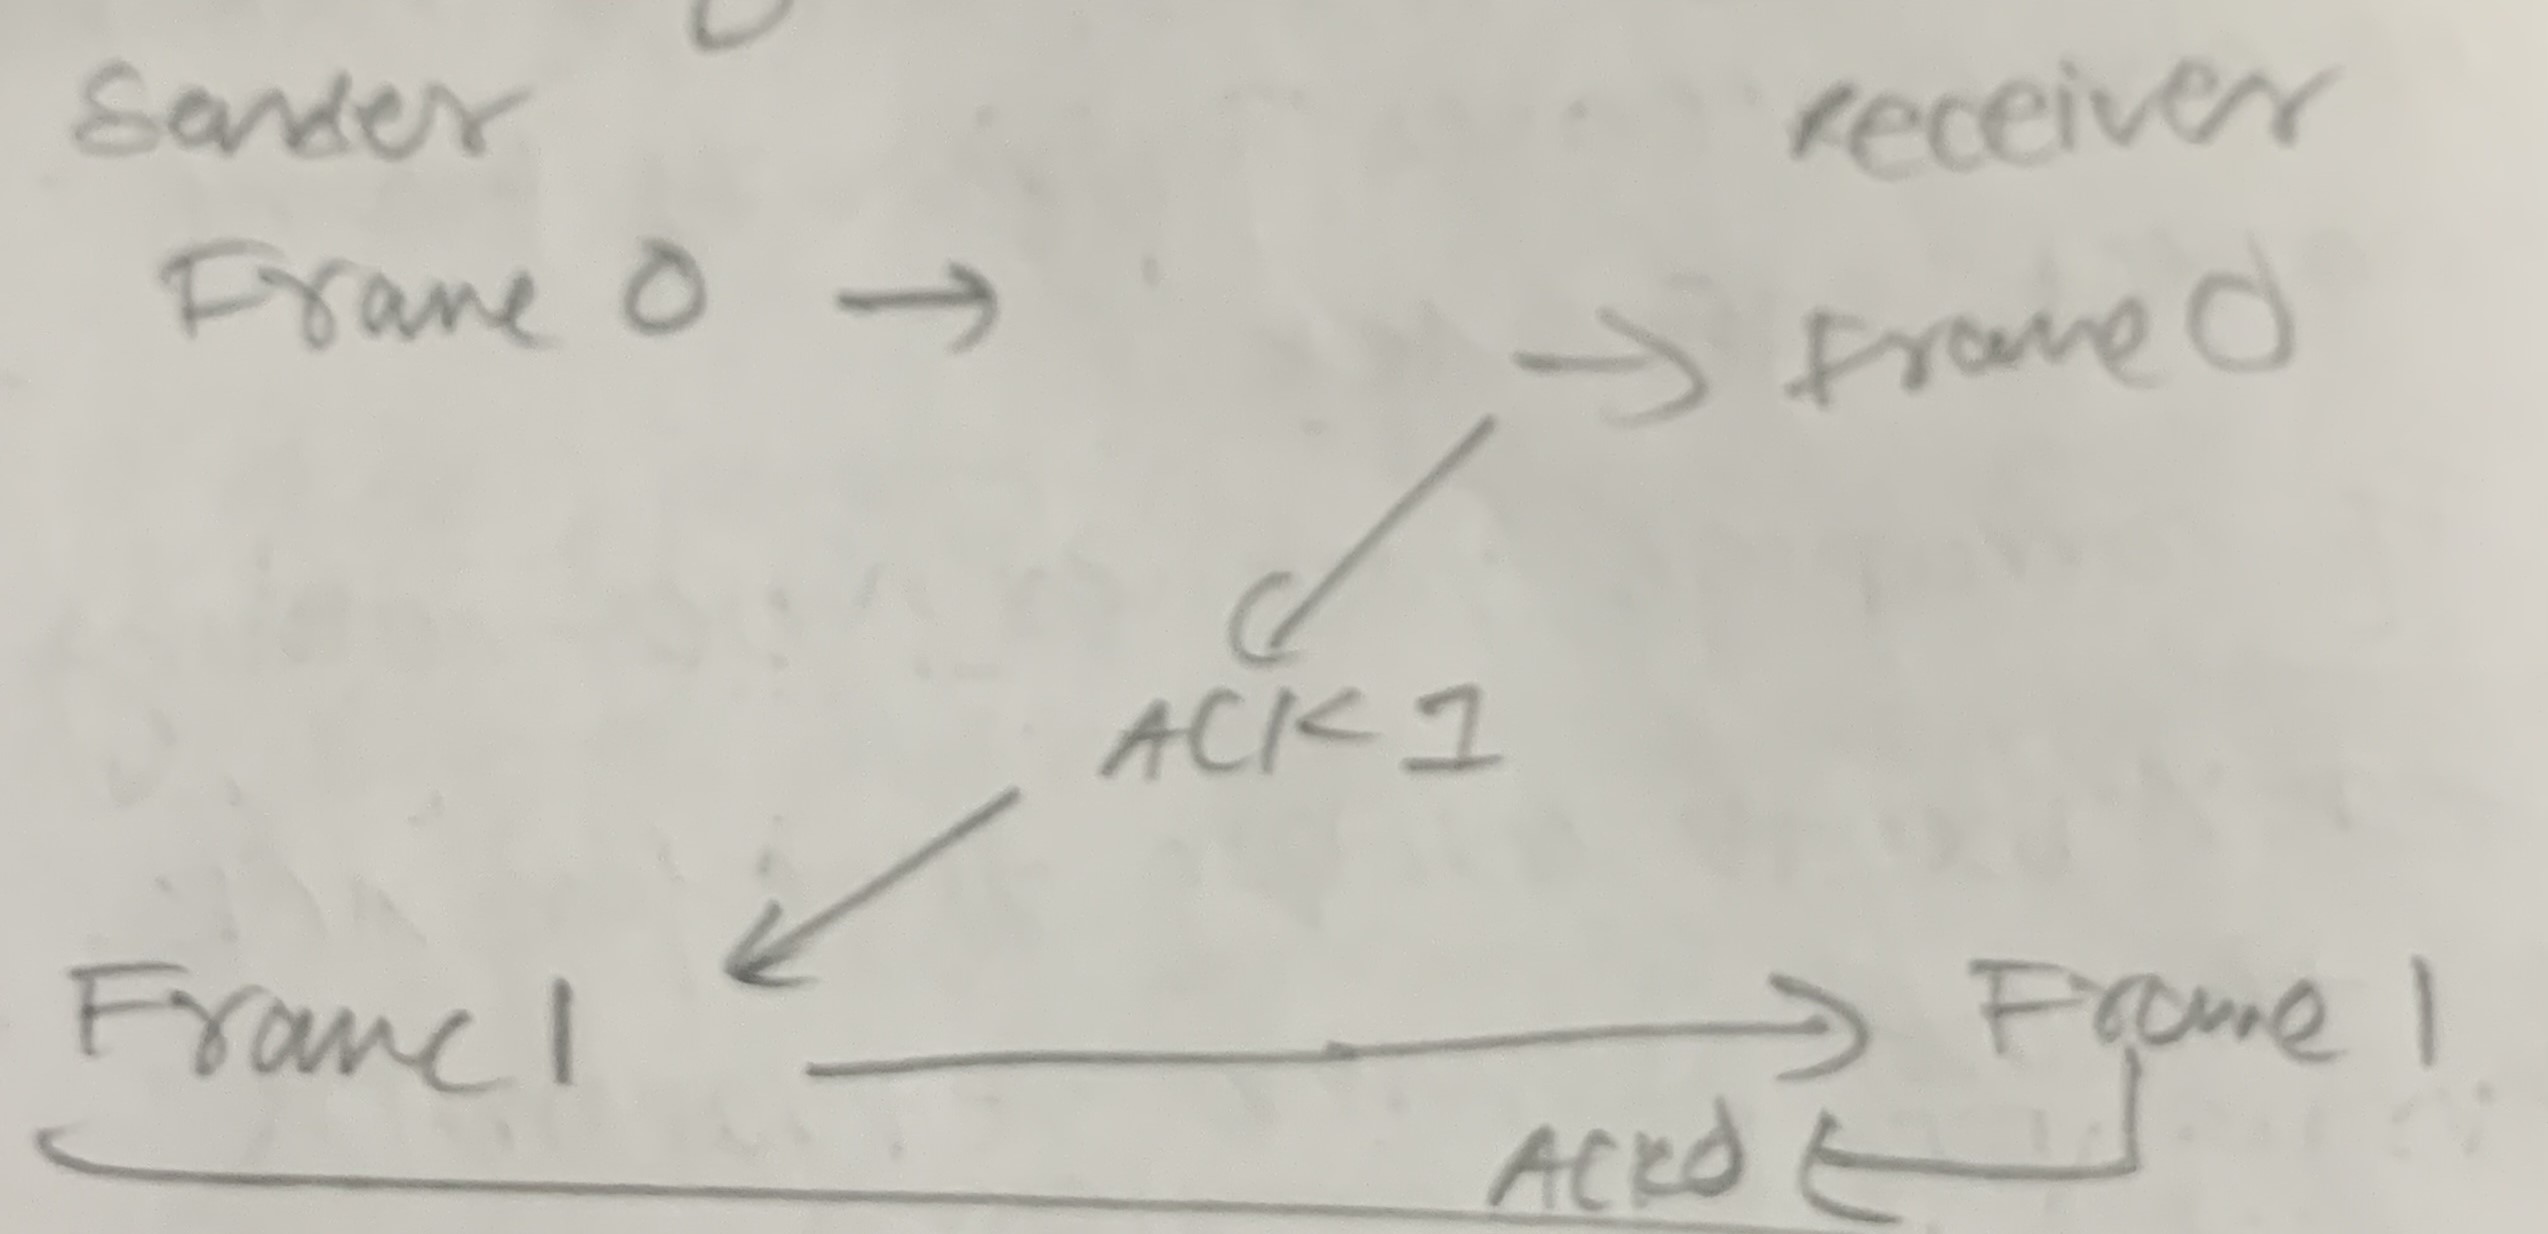 Sender receiver
Frame 0 → → Frame 0
ACK 1
Frame 1 → Frame 1
ACK0 ←